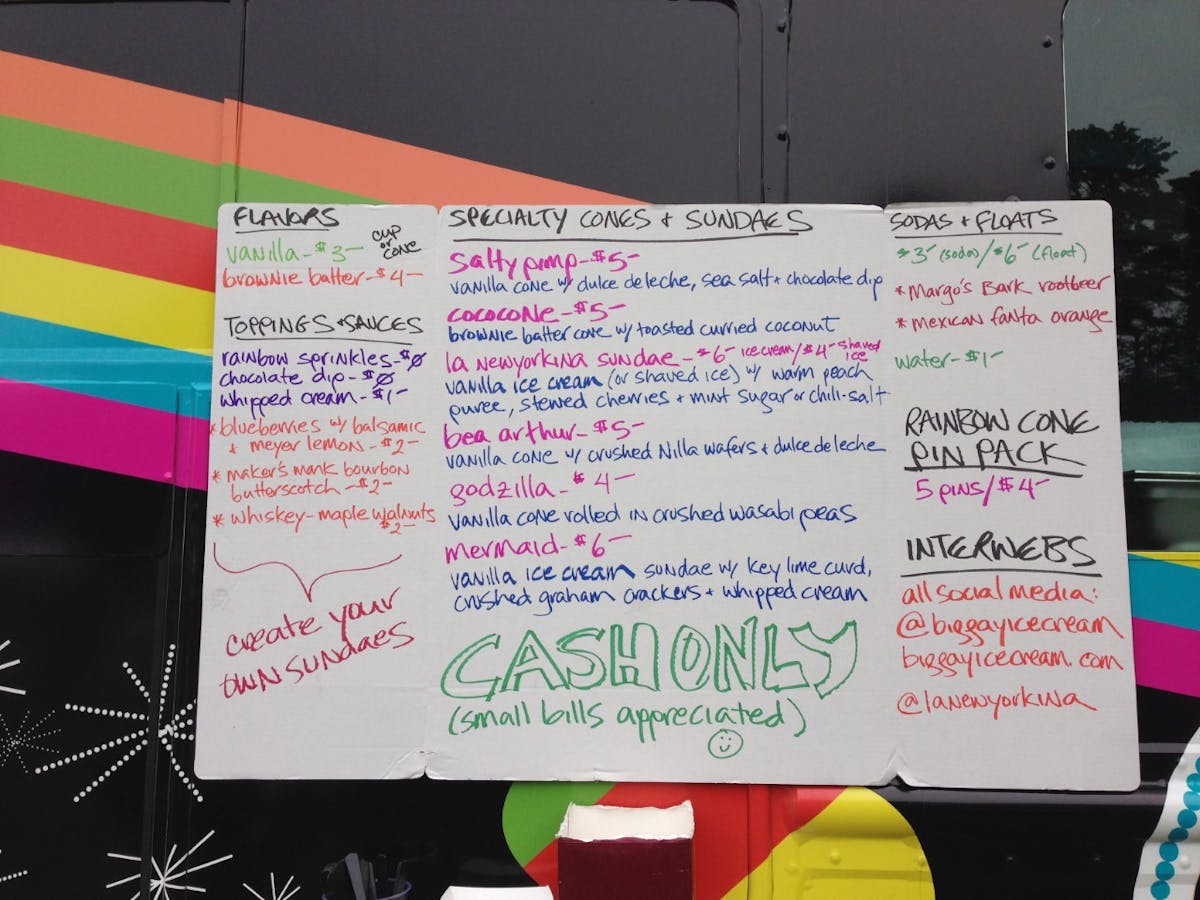 FLAVORS
vanilla - $3-
cup
or
cone
brownie batter - $4-
TOPPINGS + SAUCES
rainbow sprinkles - $0
chocolate dip - $0
whipped cream - $1-
*blueberries w/ balsamic
+ meyer lemon - $2-
* maker's mark bourbon
butterscotch - $2-
* whiskey-maple walnuts
$2-
create your
own sundaes
SPECIALTY CONES + SUNDAES
salty pimp - $5-
vanilla cone w/ dulce de leche, sea salt + chocolate dip
cococone - $5-
brownie batter cone w/ toasted curried coconut
la newyorkina sundae - $6- ice cream/$4- shaved ice
vanilla ice cream (or shaved ice) w/ warm peach
puree, stewed cherries + mint sugar or chili-salt
bea arthur - $5-
vanilla cone w/ crushed Nilla wafers + dulce de leche
godzilla - $4-
vanilla cone rolled in crushed wasabi peas
mermaid - $6-
vanilla ice cream sundae w/ key lime curd,
crushed graham crackers + whipped cream
CASH ONLY
(small bills appreciated)
SODAS + FLOATS
$3- (soda)/$6- (float)
* Margo's Bark rootbeer
* mexican fanta orange
water - $1-
RAINBOW CONE
PIN PACK
5 pins/$4-
INTERWEBS
all social media:
@biggayicecream
biggayicecream.com
@lanewyorkina